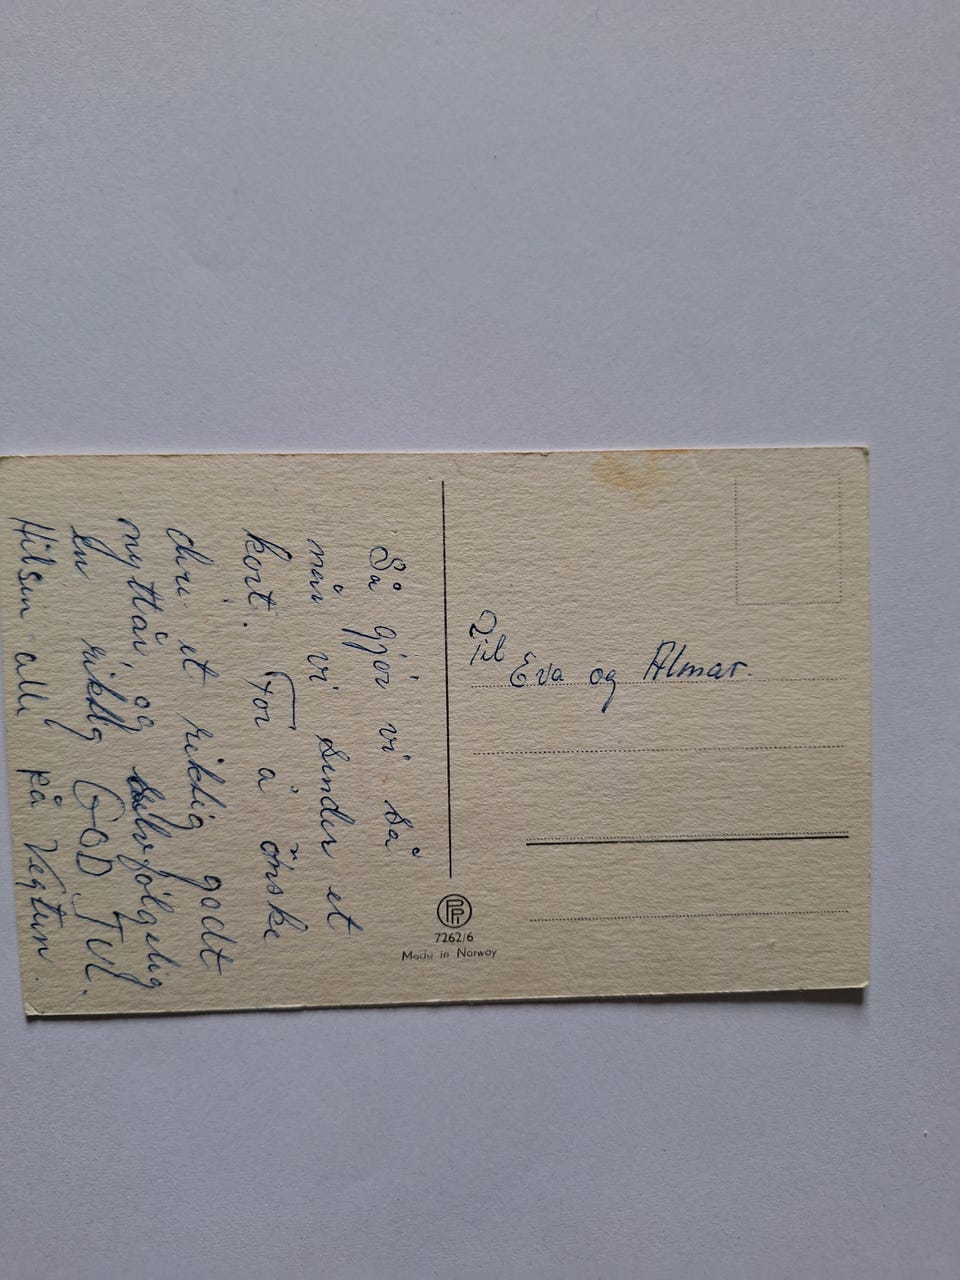 Så gjør vi så
når vi sender et
kort. For å önske
dere et riktig godt
nyttår, og selvfølgelig
en riktig GOD JUL.
Hilsen alle på Vegtun.
Til
Eva og Almar.
PPI
7262/6
Made in Norway